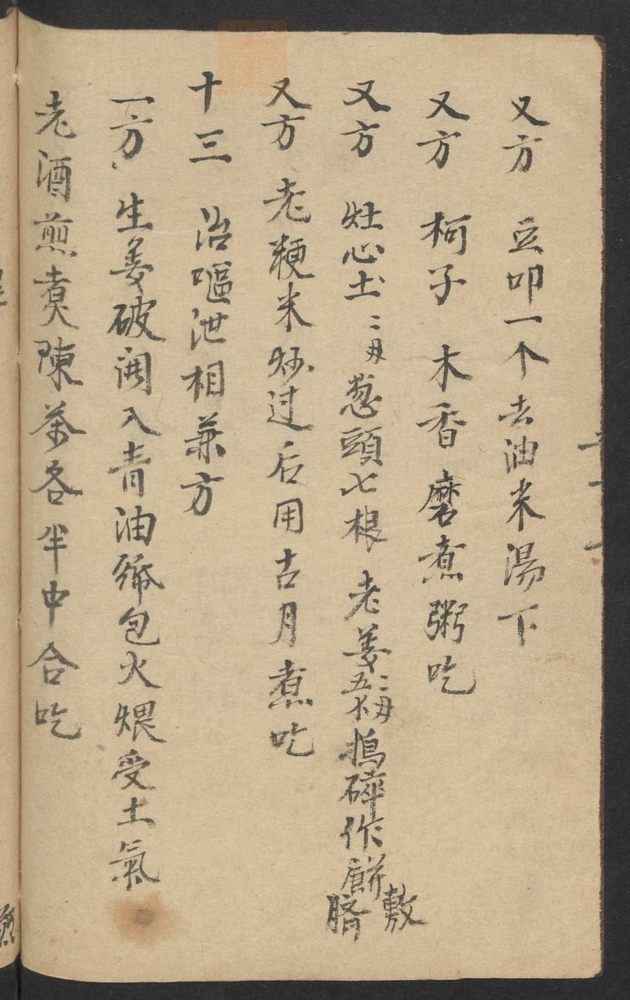 又方 豆叩一个去油米湯下
又方 柯子 木香 磨煮粥吃
又方 灶心土二丹葱頭七根 老姜二丹 搗碎作餅敷臍
又方 老粳米炒过后用古月煮吃
十三 治嘔泄相兼方
一方 生姜破開入青油紙包火煨受土氣
老酒煎 陳茶各半中合吃